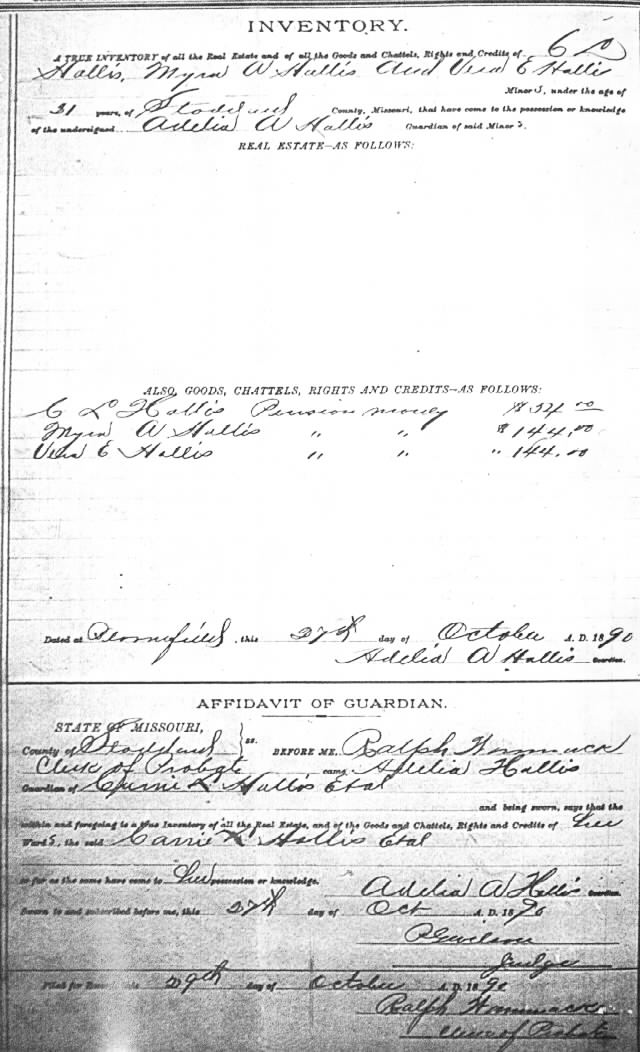 INVENTORY.
A TRUE INVENTORY of all the Real Estate and of all the Goods and Chattels, Rights and Credits of C L
Hallis, Myra A Hallis and Vera E Hallis
Minors, under the age of
21 years, of Stoddard County, Missouri, that have come to the possession or knowledge
of the undersigned Adelia A Hallis Guardian of said Minors.
REAL ESTATE—AS FOLLOWS:
ALSO, GOODS, CHATTELS, RIGHTS AND CREDITS—AS FOLLOWS:
C L Hallis Pension money $ 34.00
Myra A Hallis " " $ 144.00
Vera E Hallis " " " 144.00
Dated at Bloomfield, this 27th day of October A. D. 1890
Adelia A Hallis Guardian.
AFFIDAVIT OF GUARDIAN.
STATE OF MISSOURI,
County of Stoddard } ss. BEFORE ME, Ralph Wammack
Clerk of Probate came Adelia Hallis
Guardian of Carrie L Hallis Etal
and being sworn, says that the
within and foregoing is a true Inventory of all the Real Estate, and of the Goods and Chattels, Rights and Credits of her
Wards, the said Carrie L Hallis Etal
so far as the same have come to her possession or knowledge.
Adelia A Hallis Guardian
Sworn to and subscribed before me, this 27th day of Oct A. D. 1890
Judge
Filed for Record this 29th day of October A. D. 1890
Ralph Wammack
Clerk of Probate